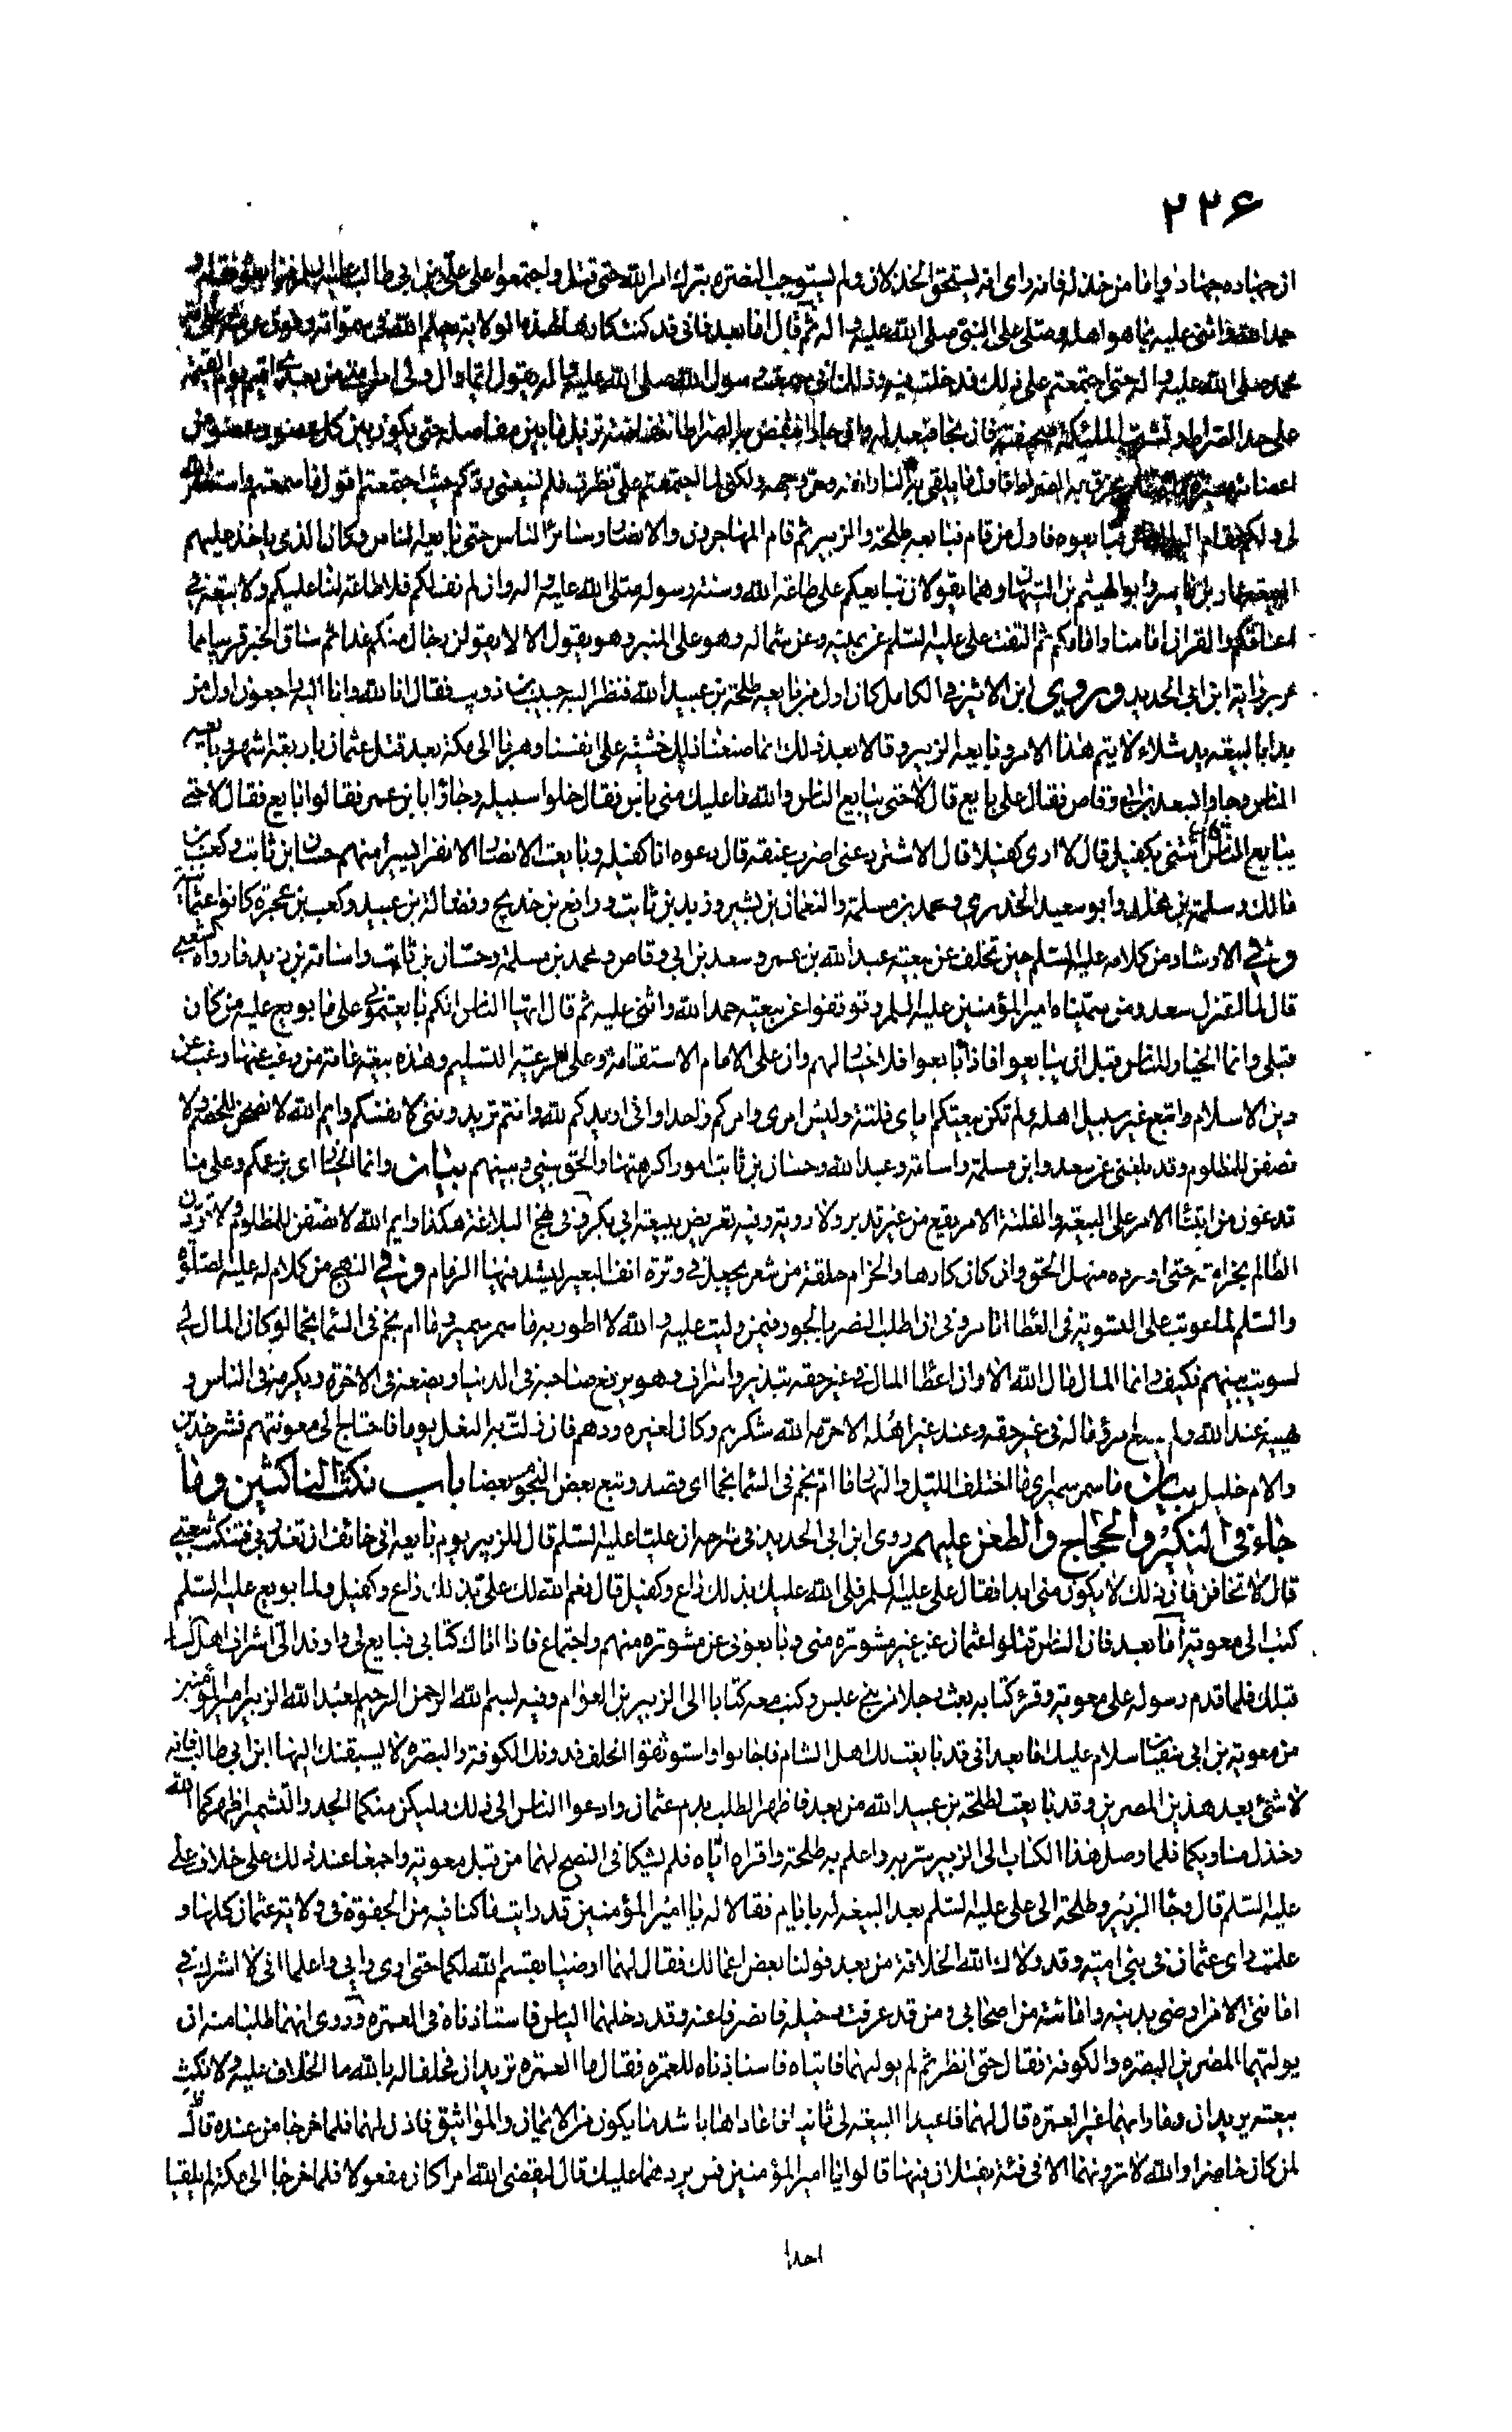 ٢٢۶
ان جهاده جهاد واما من خذله فانه راى انه يستحق الخذلان ولم يستوجب النصرة بترك امر الله حتى قتل واجتمعوا على على بن ابى طالب عليه السلم
حمدا لله واثنى عليه بما هو اهله وصلى على النبى صلى الله عليه واله ثم قال اما بعد فانى قد كنت كارها لهذه الولاية يعلم الله فى سمواته وفوق عرشه على امة
محمد صلى الله عليه واله حتى اجتمعتم على ذلك فدخلت فيه وذلك انى سمعت رسول الله صلى الله عليه واله يقول ايما وال ولى امر امتى من بعدى اقيم يوم القيمة
على حد الصراط ونشرت الملئكة صحيفته فان نجا فبعدله وان جار انتقض به الصراط انتقاضة تزيل ما بين مفاصله حتى يكون بين كل عضو وعضو من
اعضائه يخرق به الصراط فاول ما يلقى به النار انفه وحر وجهه ولكنى لما اجتمعتم على نظرت فلم يسعنى ردكم حيث اجتمعتم اقول ما سمعتم واستغفر الله
لى ولكم فقام الناس فبايعوه فاول من قام فبايعه طلحة والزبير ثم قام المهاجرون والانصار وسائر الناس حتى بايعه الناس وكان الذى ياخذ عليهم
البيعة عمار بن ياسر وابو الهيثم بن التيهان وهما يقولان نبايعكم على طاعة الله وسنة رسوله صلى الله عليه واله وان لم نف لكم فلا طاعة لنا عليكم ولا بيعة فى
اعناقكم والقران امامنا وامامكم ثم التفت على عليه السلم عن يمينه وعن شماله وهو على المنبر وهو يقول الا لا يقولن رجال منكم غدا ثم ساق الخبر قريبا مما
مر برواية ابن ابى الحديد وروى ابن الاثير فى الكامل كان اول من بايعه طلحة بن عبيد الله فنظر اليه حبيب بن ذويب فقال انا لله وانا اليه راجعون اول من
بدا بالبيعة يد شلاء لا يتم هذا الامر وبايعه الزبير وقالا بعد ذلك انما صنعنا ذلك خشية على انفسنا وهربا الى مكة بعد قتل عثمان باربعة اشهر وبايعه
الناس وجاوا بسعد بن ابى وقاص فقال على بايع قال لا حتى يبايع الناس والله ما عليك منى باس فقال خلوا سبيله وجاوا بابن عمر فقالوا بايع فقال لا حتى
يبايع الناس قال ائتنى بكفيل قال لا ارى كفيلا قال الاشتر دعنى اضرب عنقه قال دعوه انا كفيله وبايعت الانصار الا نفرا يسيرا منهم حسان بن ثابت وكعب بن
مالك وسلمة بن مخلد وابو سعيد الخدرى ومحمد بن مسلمة والنعمان بن بشير وزيد بن ثابت ورافع بن خديج وفضالة بن عبيد وكعب بن عجرة كانوا عثمانية
وفى الارشاد من كلامه عليه السلم حين تخلف عن بيعته عبد الله بن عمر وسعد بن ابى وقاص ومحمد بن مسلمة وحسان بن ثابت واسامة بن زيد ما رواه الشعبى
قال لما اعتزل سعد ومن سميناه امير المؤمنين عليه السلم وتوقفوا عن بيعته حمد الله واثنى عليه ثم قال ايها الناس انكم بايعتمونى على ما بويع عليه من كان
قبلى وانما الخيار للناس قبل ان يبايعوا فاذا بايعوا فلا خيار لهم وان على الامام الاستقامة وعلى الرعية التسليم وهذه بيعة عامة من رغب عنها رغب عن
دين الاسلام واتبع غير سبيل اهله ولم تكن بيعتكم اياى فلتة وليس امرى وامركم واحدا وانى اريدكم لله وانتم تريدوننى لانفسكم وايم الله لانصحن للخصم ولا
نصفن للمظلوم وقد بلغنى عن سعد وابن مسلمة واسامة وعبد الله وحسان بن ثابت امور اكرهتها والحق بينى وبينهم بيان وانما الخيار اى بزعمكم وعلى ما
تدعون من ابتناء الامر على البيعة والفلتة الامر يقع من غير تدبر ولا روية وفيه تعريض ببيعة ابى بكر وفى نهج البلاغة هكذا وايم الله لانصفن المظلوم ولاقودن
الظالم بخزامته حتى اورده منهل الحق وان كان كارها والخزام حلقة من شعر يجعل فى وترة انف البعير ليشد فيها الزمام وفى النهج من كلام له عليه الصلوة
والسلم لما عوتب على التسوية فى العطاء اتامرونى ان اطلب النصر بالجور فيمن وليت عليه والله لا اطور به ما سمر سمير وما ام نجم فى السماء نجما لو كان المال لى
لسويت بينهم فكيف وانما المال مال الله الا وان اعطاء المال فى غير حقه تبذير واسراف وهو يرفع صاحبه فى الدنيا ويضعه فى الاخرة ويكرمه فى الناس و
يهينه عند الله ولم يضع امرؤ ماله فى غير حقه وعند غير اهله الا حرمه الله شكرهم وكان لغيره ودهم فان زلت به النعل يوما فاحتاج الى معونتهم فشر خدين
والام خليل بيان ما سمر سمير اى ما اختلف الليل والنهار وما ام نجم فى السماء نجما اى قصد وتبع بعض النجوم بعضا باب نكث الناكثين وما
جاء فى النكير والحجاج والطعن عليهم روى ابن ابى الحديد فى شرحه ان عليا عليه السلم قال للزبير يوم بايعه انى لخائف ان تغدر بى فتنكث بيعتى
قال لا تخافن فان ذلك لا يكون منى ابدا فقال على عليه السلم فلى الله عليك بذلك راع وكفيل قال نعم الله لك على بذلك راع وكفيل ولما بويع عليه السلم
كتب الى معوية اما بعد فان الناس قتلوا عثمان عن غير مشورة منى وبايعونى عن مشورة منهم واجتماع فاذا اتاك كتابى فبايع لى واوفد الى اشراف اهل الشام
قبلك فلما قدم رسوله على معوية وقرء كتابه بعث رجلا من بنى عبس وكتب معه كتابا الى الزبير بن العوام وفيه بسم الله الرحمن الرحيم لعبد الله الزبير امير المؤمنين
من معوية بن ابى سفيان سلام عليك اما بعد فانى قد بايعت لك اهل الشام فاجابوا واستوثقوا الحلف فدونك الكوفة والبصرة لا يسبقنك اليها ابن ابى طالب فانه
لا شئ بعد هذين المصرين وقد بايعت لطلحة بن عبيد الله من بعدك فاظهرا الطلب بدم عثمان وادعوا الناس الى ذلك وليكن منكما الجد والتشمير اظهركما الله
وخذل مناويكما فلما وصل هذا الكتاب الى الزبير سر به واعلم به طلحة واقراه اياه فلم يشكا فى النصح لهما من قبل معوية واجمعا عند ذلك على خلاف على
عليه السلم قال وجاء الزبير وطلحة الى على عليه السلم بعد البيعة له بايام فقالا له يا امير المؤمنين قد رايت ما كنا فيه من الجفوة فى ولاية عثمان كلها و
علمت راى عثمان فى بنى امية وقد ولاك الله الخلافة من بعده فولنا بعض اعمالك فقال لهما ارضيا بقسم الله لكما حتى ارى رايى واعلما انى لا اشرك فى
امانتى الا من ارضى بدينه وامانته من اصحابى ومن قد عرفت دخيله فانصرفا عنه وقد دخلهما الياس فاستاذناه فى العمرة وروى انهما طلبا منه ان
يوليهما المصرين البصرة والكوفة فقال حتى انظر ثم لم يولهما فاتياه فاستاذناه للعمرة فقال ما العمرة تريدان فحلفا له بالله ما الخلاف عليه ولا نكث
بيعته يريدان وما رايهما غير العمرة قال لهما فاعيدا البيعة لى ثانيا فاعاداها باشد ما يكون من الايمان والمواثيق فاذن لهما فلما خرجا من عنده قال
لمن كان حاضرا والله لا ترونهما الا فى فتنة يقتتلان فيها قالوا يا امير المؤمنين فمر بردهما عليك قال ليقضى الله امرا كان مفعولا فلما خرجا الى مكة لم يلقيا
احدا